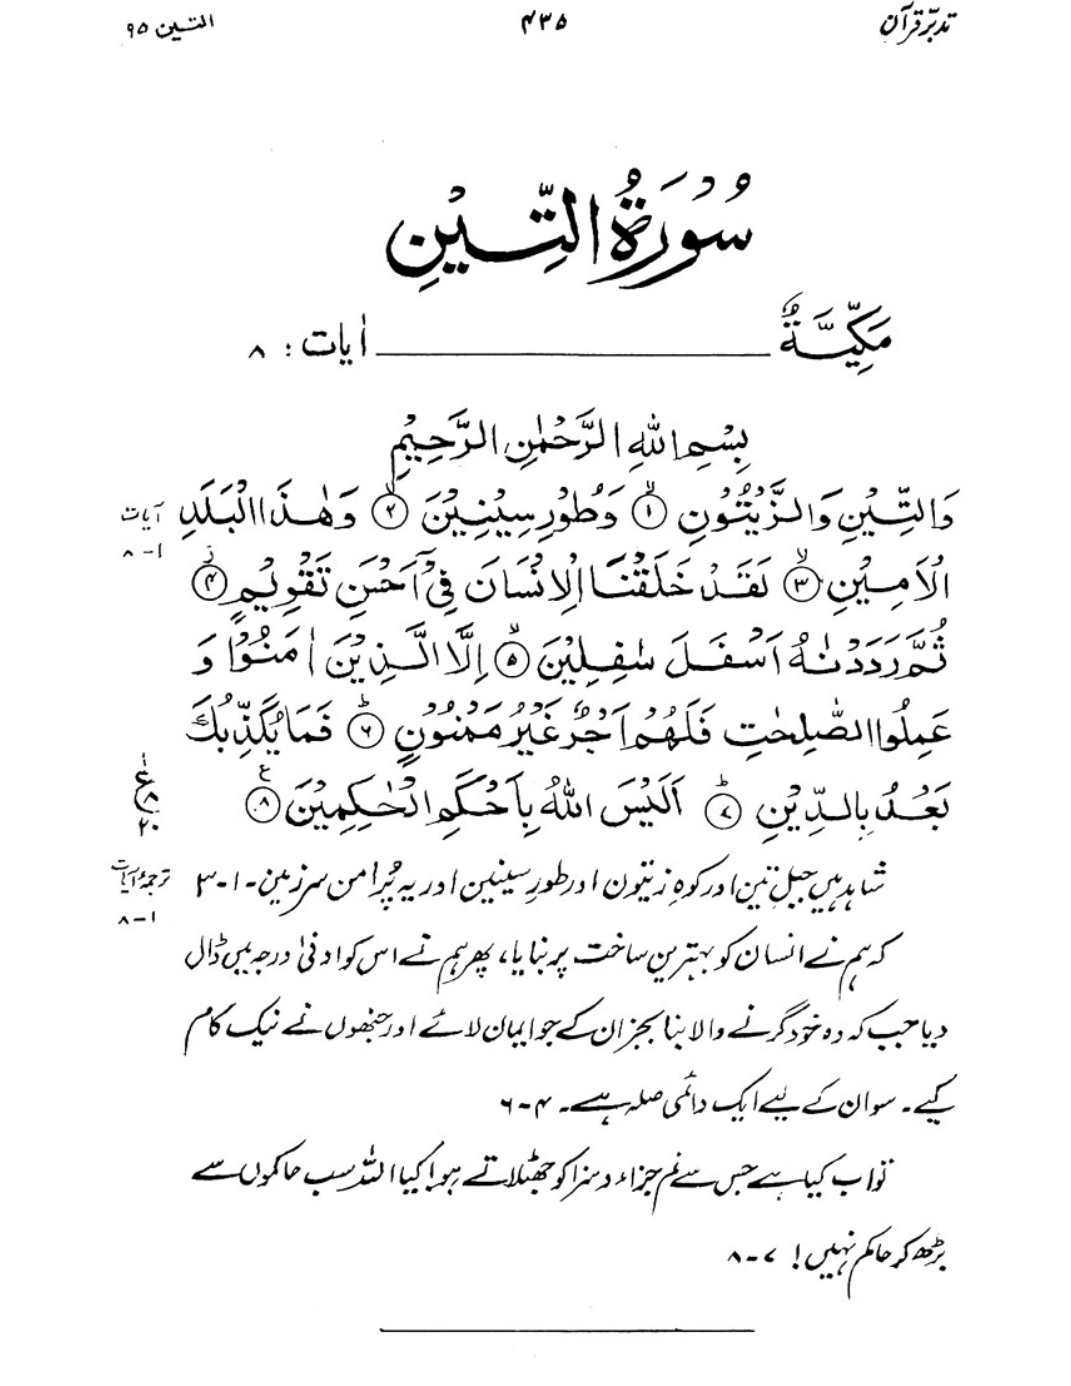 تدبّرِ قرآن ۴۳۵ التین ۹۵
سُوْرَةُ التِّيْنِ
مَكِّيَّةٌ اٰيات : ۸
بِسْمِ اللهِ الرَّحْمٰنِ الرَّحِيْمِ
وَالتِّيْنِ وَالزَّيْتُوْنِ ۙ﴿۱﴾ وَطُوْرِ سِيْنِيْنَ ۙ﴿۲﴾ وَهٰذَا الْبَلَدِ آیات
الْاَمِيْنِ ۙ﴿۳﴾ لَقَدْ خَلَقْنَا الْاِنْسَانَ فِيْٓ اَحْسَنِ تَقْوِيْمٍ ۫﴿۴﴾ ۱-۸
ثُمَّ رَدَدْنٰهُ اَسْفَلَ سٰفِلِيْنَ ۙ﴿۵﴾ اِلَّا الَّذِيْنَ اٰمَنُوْا وَ
عَمِلُوا الصّٰلِحٰتِ فَلَهُمْ اَجْرٌ غَيْرُ مَمْنُوْنٍ ؕ﴿۶﴾ فَمَا يُكَذِّبُكَ
بَعْدُ بِالدِّيْنِ ؕ﴿۷﴾ اَلَيْسَ اللهُ بِاَحْكَمِ الْحٰكِمِيْنَ ﴿۸﴾ ع ۸ ۲۰
شاہد ہیں جبلِ تین اور کوہِ زیتون اور طورِ سینین اور یہ پُر امن سرزمین۔ ۱-۳ ترجمۂ آیات
۱-۸
کہ ہم نے انسان کو بہترین ساخت پر بنایا، پھر ہم نے اس کو ادنیٰ درجہ میں ڈال
دیا جب کہ وہ خود گرنے والا بنا بجز ان کے جو ایمان لائے اور جنھوں نے نیک کام
کیے۔ سو ان کے لیے ایک دائمی صلہ ہے۔ ۴-۶
تو اب کیا ہے جس سے تم جزاء و سزا کو جھٹلاتے ہو! کیا اللہ سب حاکموں سے
بڑھ کر حاکم نہیں! ۷-۸